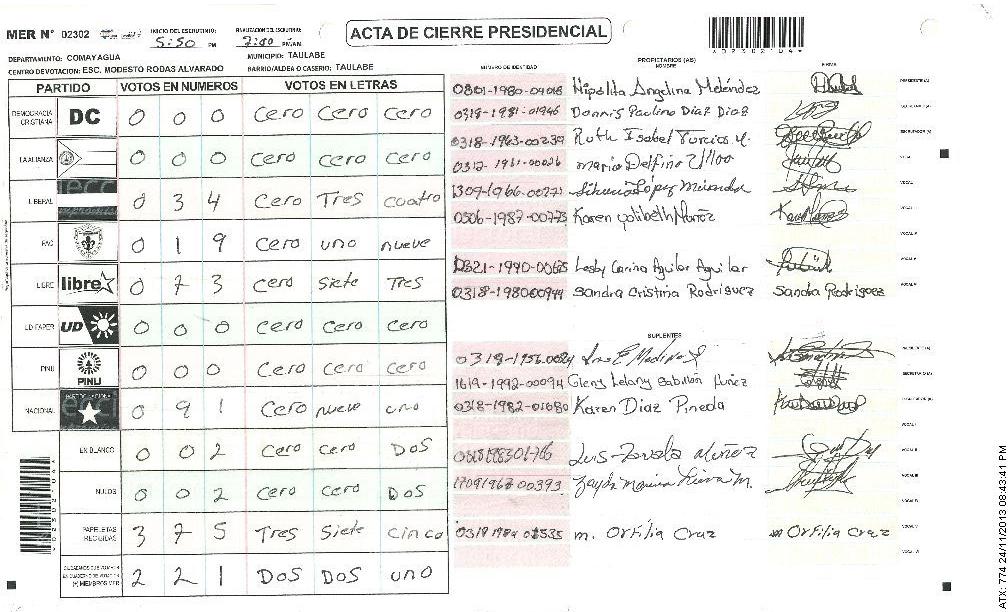 MER N° 02302
INICIO DEL ESCRUTINIO: 5:50 PM
FINALIZACION DEL ESCRUTINIO: 7:00 PM/AM
ACTA DE CIERRE PRESIDENCIAL
DEPARTAMENTO: COMAYAGUA
MUNICIPIO: TAULABE
CENTRO DE VOTACION: ESC. MODESTO RODAS ALVARADO
BARRIO/ALDEA O CASERIO: TAULABE
PARTIDO VOTOS EN NUMEROS VOTOS EN LETRAS
DEMOCRACIA CRISTIANA DC 0 0 0 cero cero cero
LA ALIANZA 0 0 0 cero cero cero
LIBERAL 0 3 4 cero Tres cuatro
PAC 0 1 9 cero uno nueve
LIBRE libre 0 7 3 cero siete Tres
UD FAPER UD 0 0 0 cero cero cero
PINU PINU 0 0 0 cero cero cero
NACIONAL 0 9 1 cero nueve uno
EN BLANCO 0 0 2 cero cero Dos
NULOS 0 0 2 cero cero Dos
PAPELETAS RECIBIDAS 3 7 5 Tres siete cinco
2 2 1 Dos Dos uno
PROPIETARIOS (AS)
NUMERO DE IDENTIDAD NOMBRE FIRMA
0801-1980-04018 Hipolita Angelina Meléndez
0318-1981-01946 Donnis Paulino Diaz Diaz
0318-1963-00239 Ruth Isabel Turcios
0312-1961-00026 Mario Delfino Ulloa
1309-1966-00271 López Miranda
0506-1987-00773 Karen Yolibeth Muñoz
0321-1990-00665 Lesby Carina Aguilar Aguilar
0318-1980-00944 Sandra Cristina Rodriguez Sandra Rodriguez
SUPLENTES
0318-1956-0024
1619-1992-00094 Gleny Lelany Gabillon Nuñez
0318-1982-01680 Karen Diaz Pineda
Luis Zavala Muñez
1709 1967 00393 Zayda
0318 1984 01535 m. Orfilia Cruz m Orfilia Cruz
ATX: 774 24/11/2013 08:43:41 PM